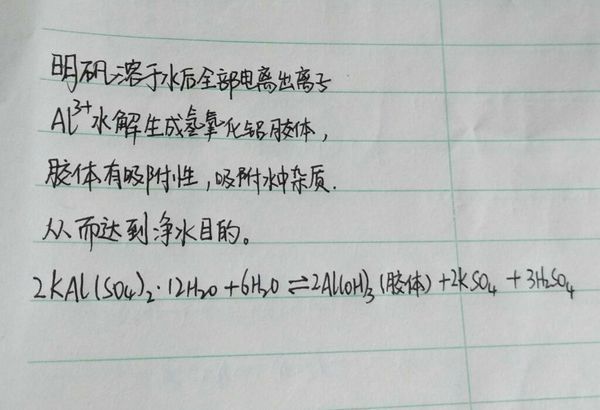 明矾溶于水后全部电离出离子
Al³⁺水解生成氢氧化铝胶体，
胶体有吸附性，吸附水中杂质.
从而达到净水目的。
2KAl(SO₄)₂·12H₂O+6H₂O⇌2Al(OH)₃(胶体)+2KSO₄+3H₂SO₄